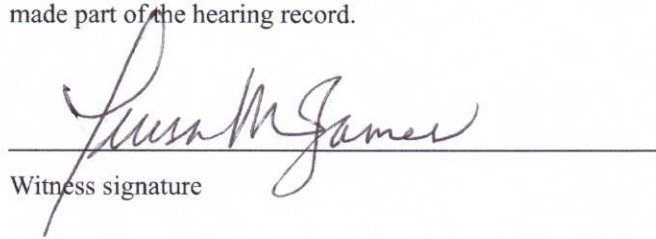 made part of the hearing record.
Teresa M James
Witness signature